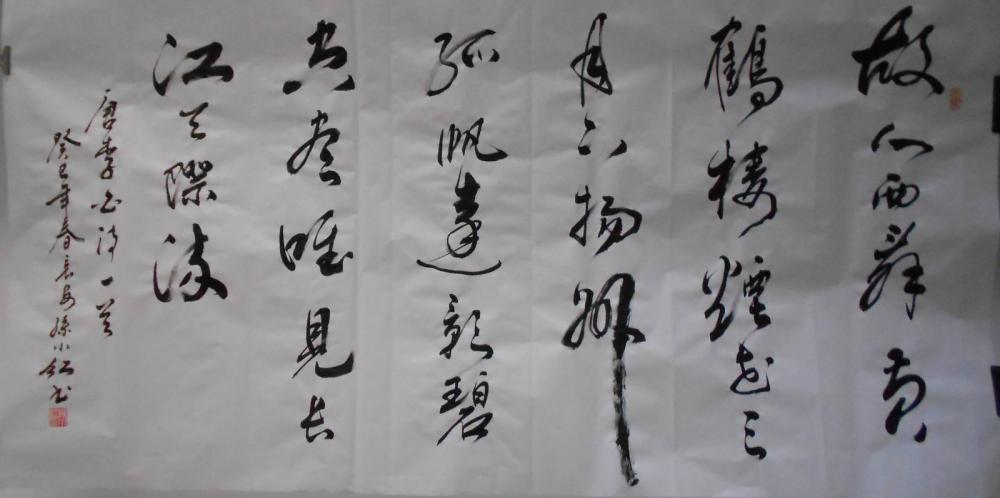 故人西辭黄
鶴樓煙花三
月下揚州
孤帆遠影碧
空盡唯見長
江天際流
唐李白詩一首
癸巳年春長安小紅書